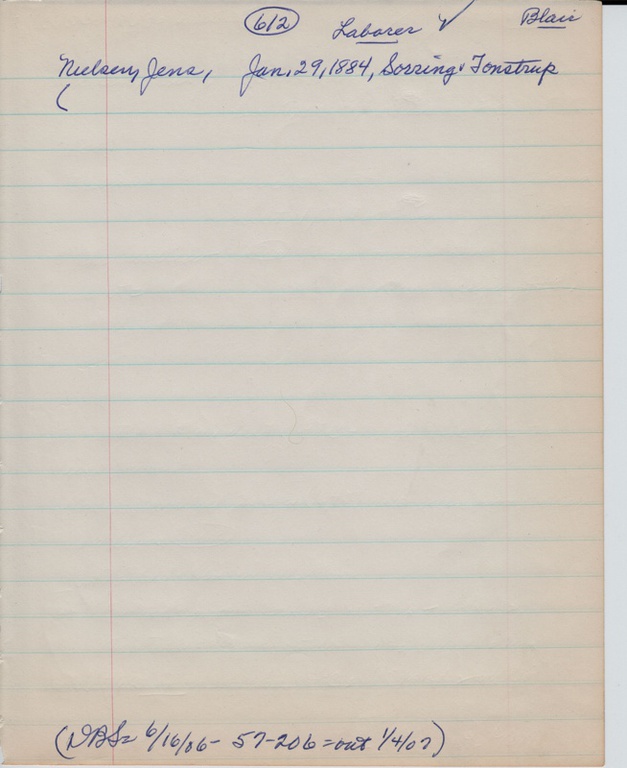 612 Laborer ✓ Blair
Nielsen, Jens, Jan. 29, 1884, Sorring, Tonstrup
(
(DBS= 6/16/06- 57-206=out 1/4/07)